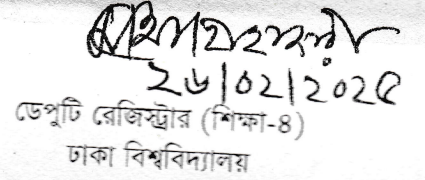 ২৬|০২|২০২৫
ডেপুটি রেজিস্ট্রার (শিক্ষা-৪)
ঢাকা বিশ্ববিদ্যালয়